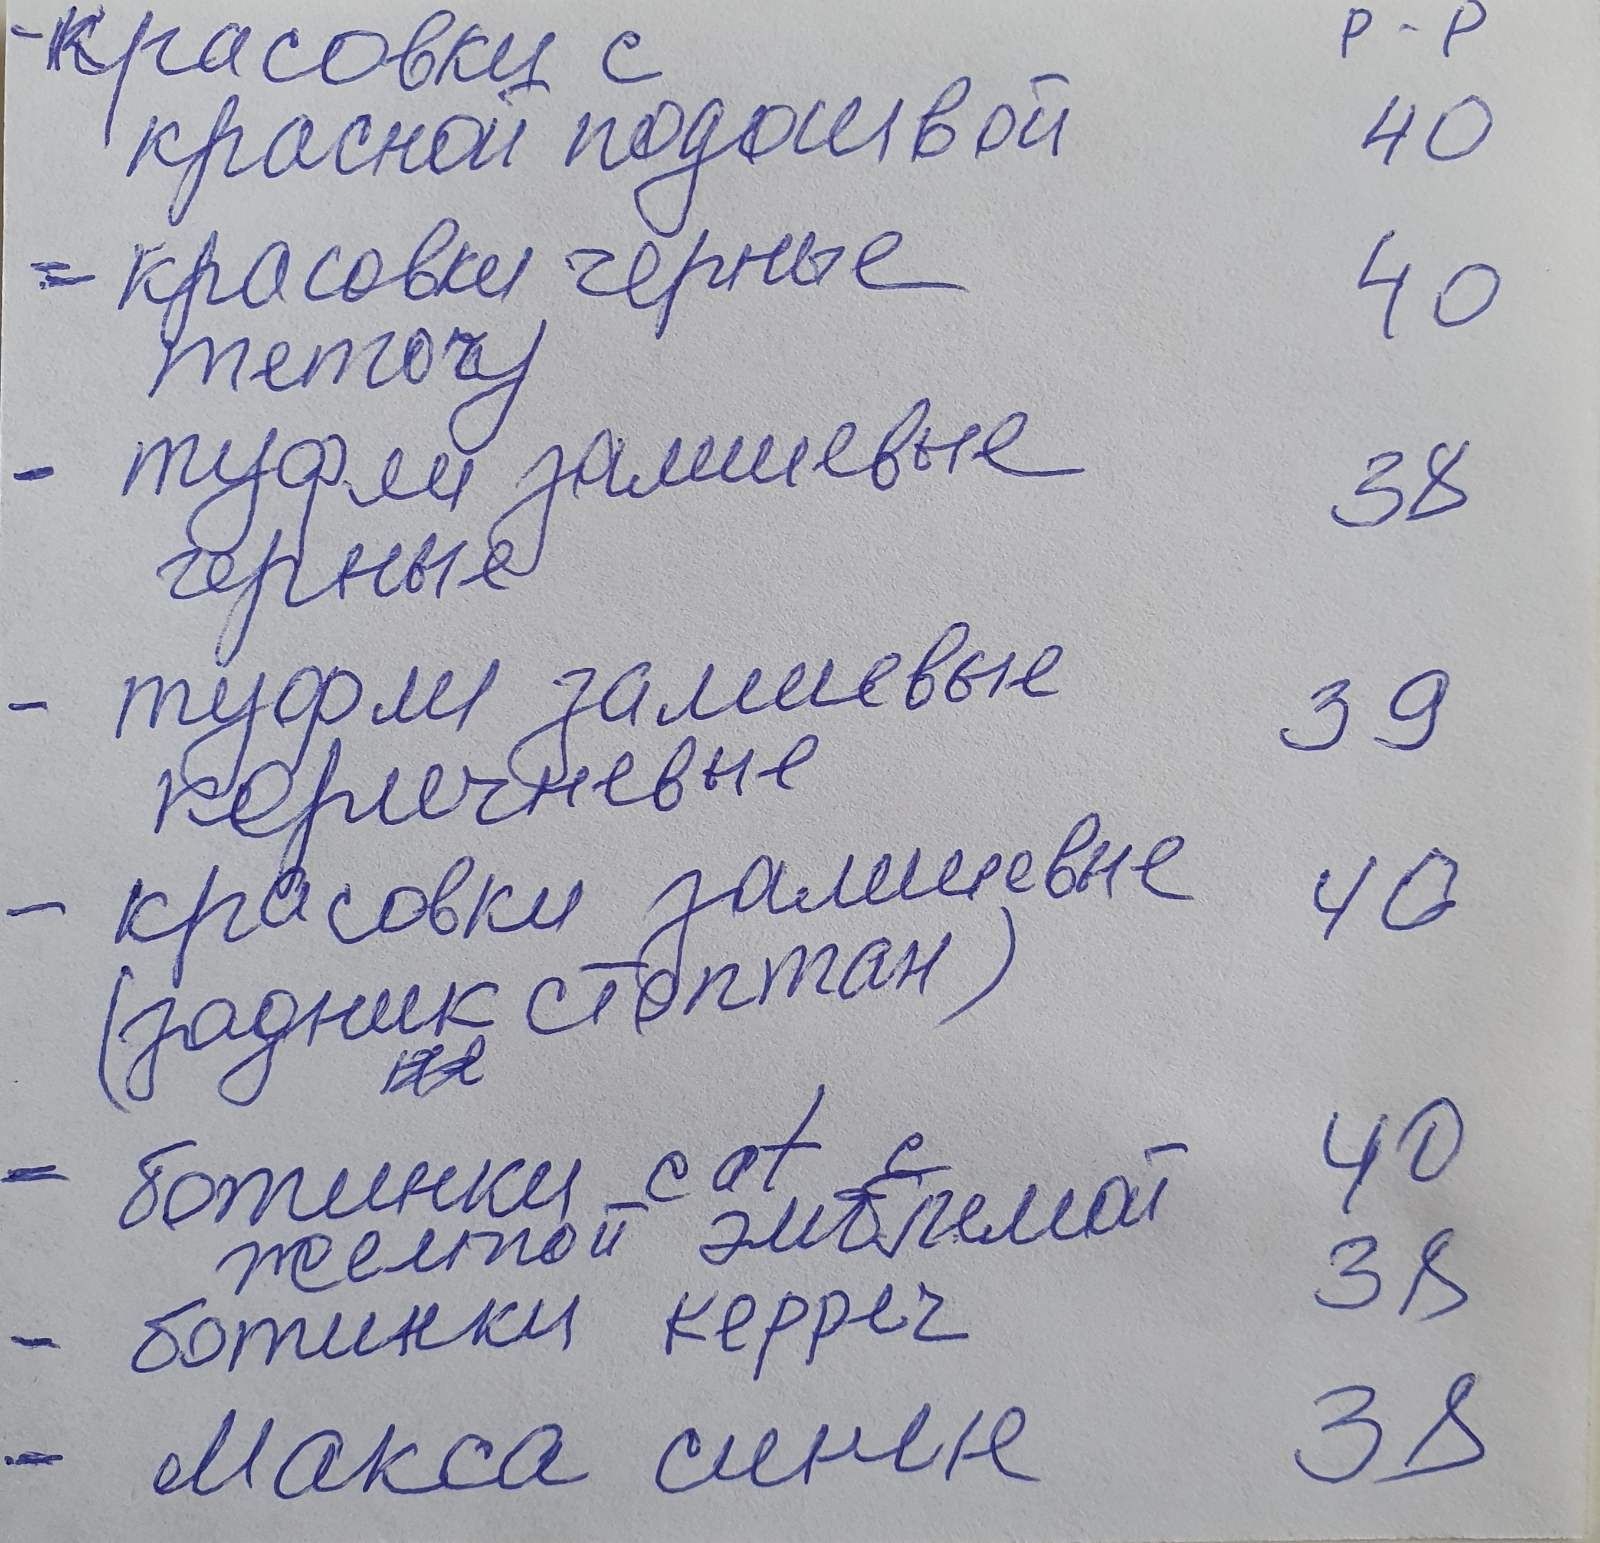 - красовки с р-р
красной подошвой 40
= красовки черные 40
теточу
- туфли замшевые 38
черные
- туфли замшевые 39
керичневые
- красовки замшевые 40
(задник стоптан)
= ботинки cat с 40
желтой эмблемой
- ботинки керреч 38
- Макса синие 38